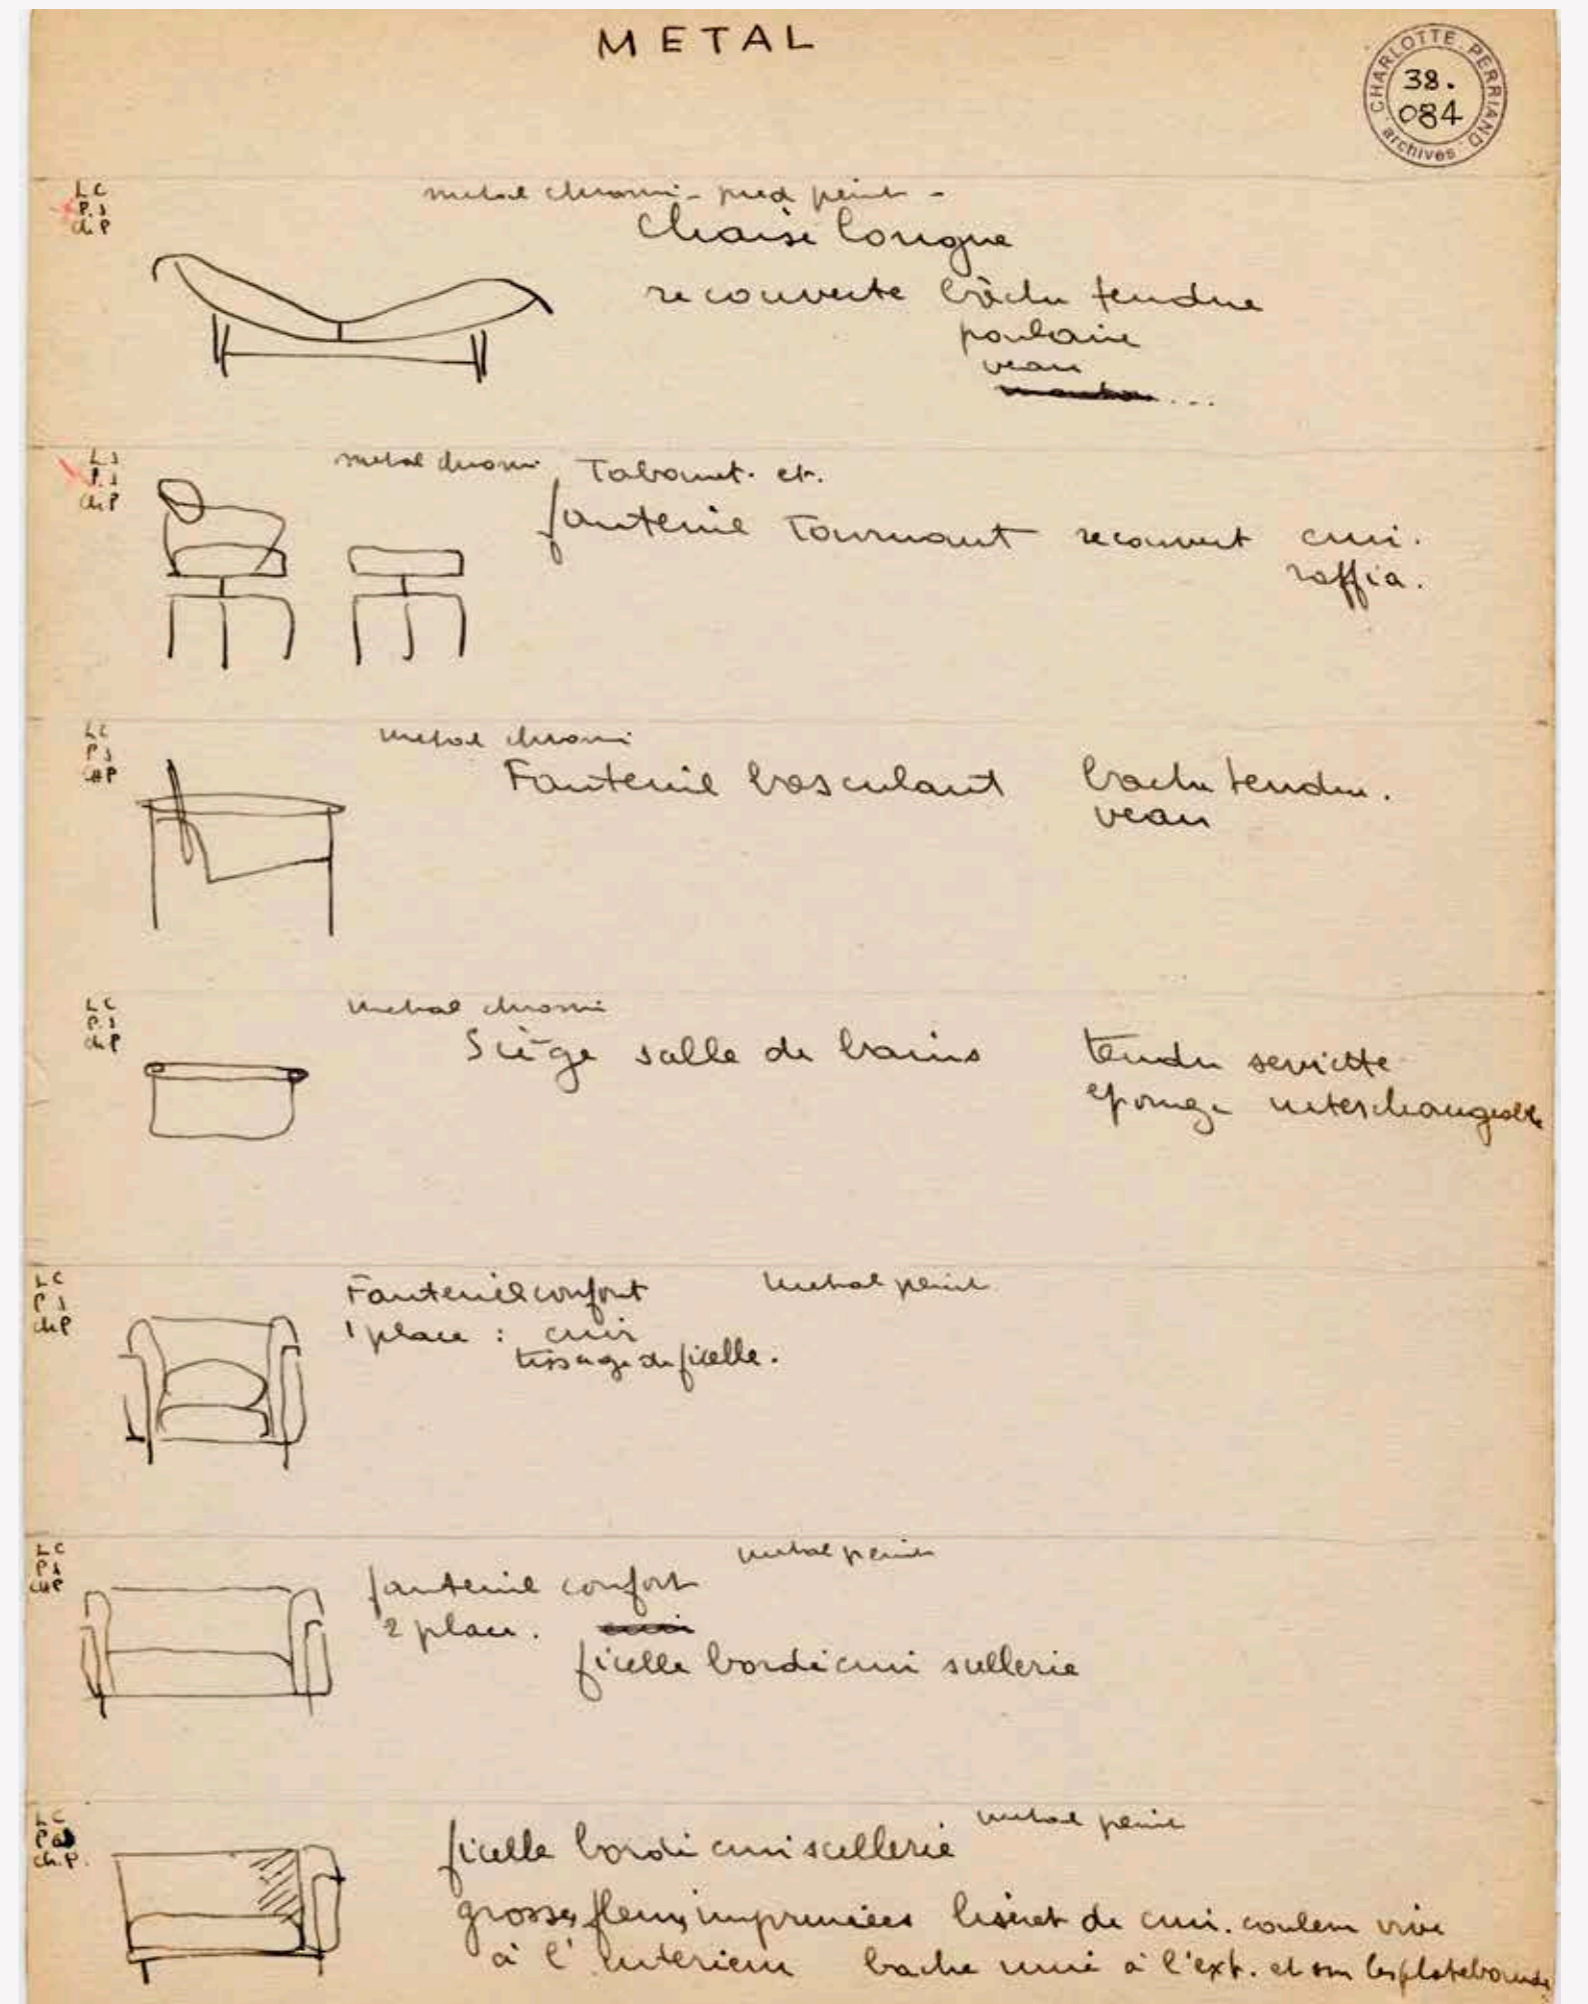 METAL
CHARLOTTE PERRIAND archives
38.
084
LC
P.J
ch.P
metal chromé - pied peint -
Chaise longue
recouverte bâche tendue
poulain
veau
...
P.J
ch.P
metal chromé
Tabouret. et.
fauteuil Tournant recouvert cuir.
raffia.
LC
PJ
chP
metal chromé
Fauteuil basculant bache tendu.
veau
LC
P.J
chP
metal chromé
Siège salle de bains tendu serviette
eponge interchangeable
LC
PJ
chP
Fauteuil confort metal peint
1 place : cuir
tissage de ficelle.
LC
PJ
chP
metal peint
fauteuil confort
2 place. cuir
ficelle bordé cuir sellerie
LC
ch.P.
metal peint
ficelle bordé cuir scellerie
grosses fleurs imprimées liseret de cuir. couleur vive
à l'interieur bache unie à l'ext. et sur les platebandes